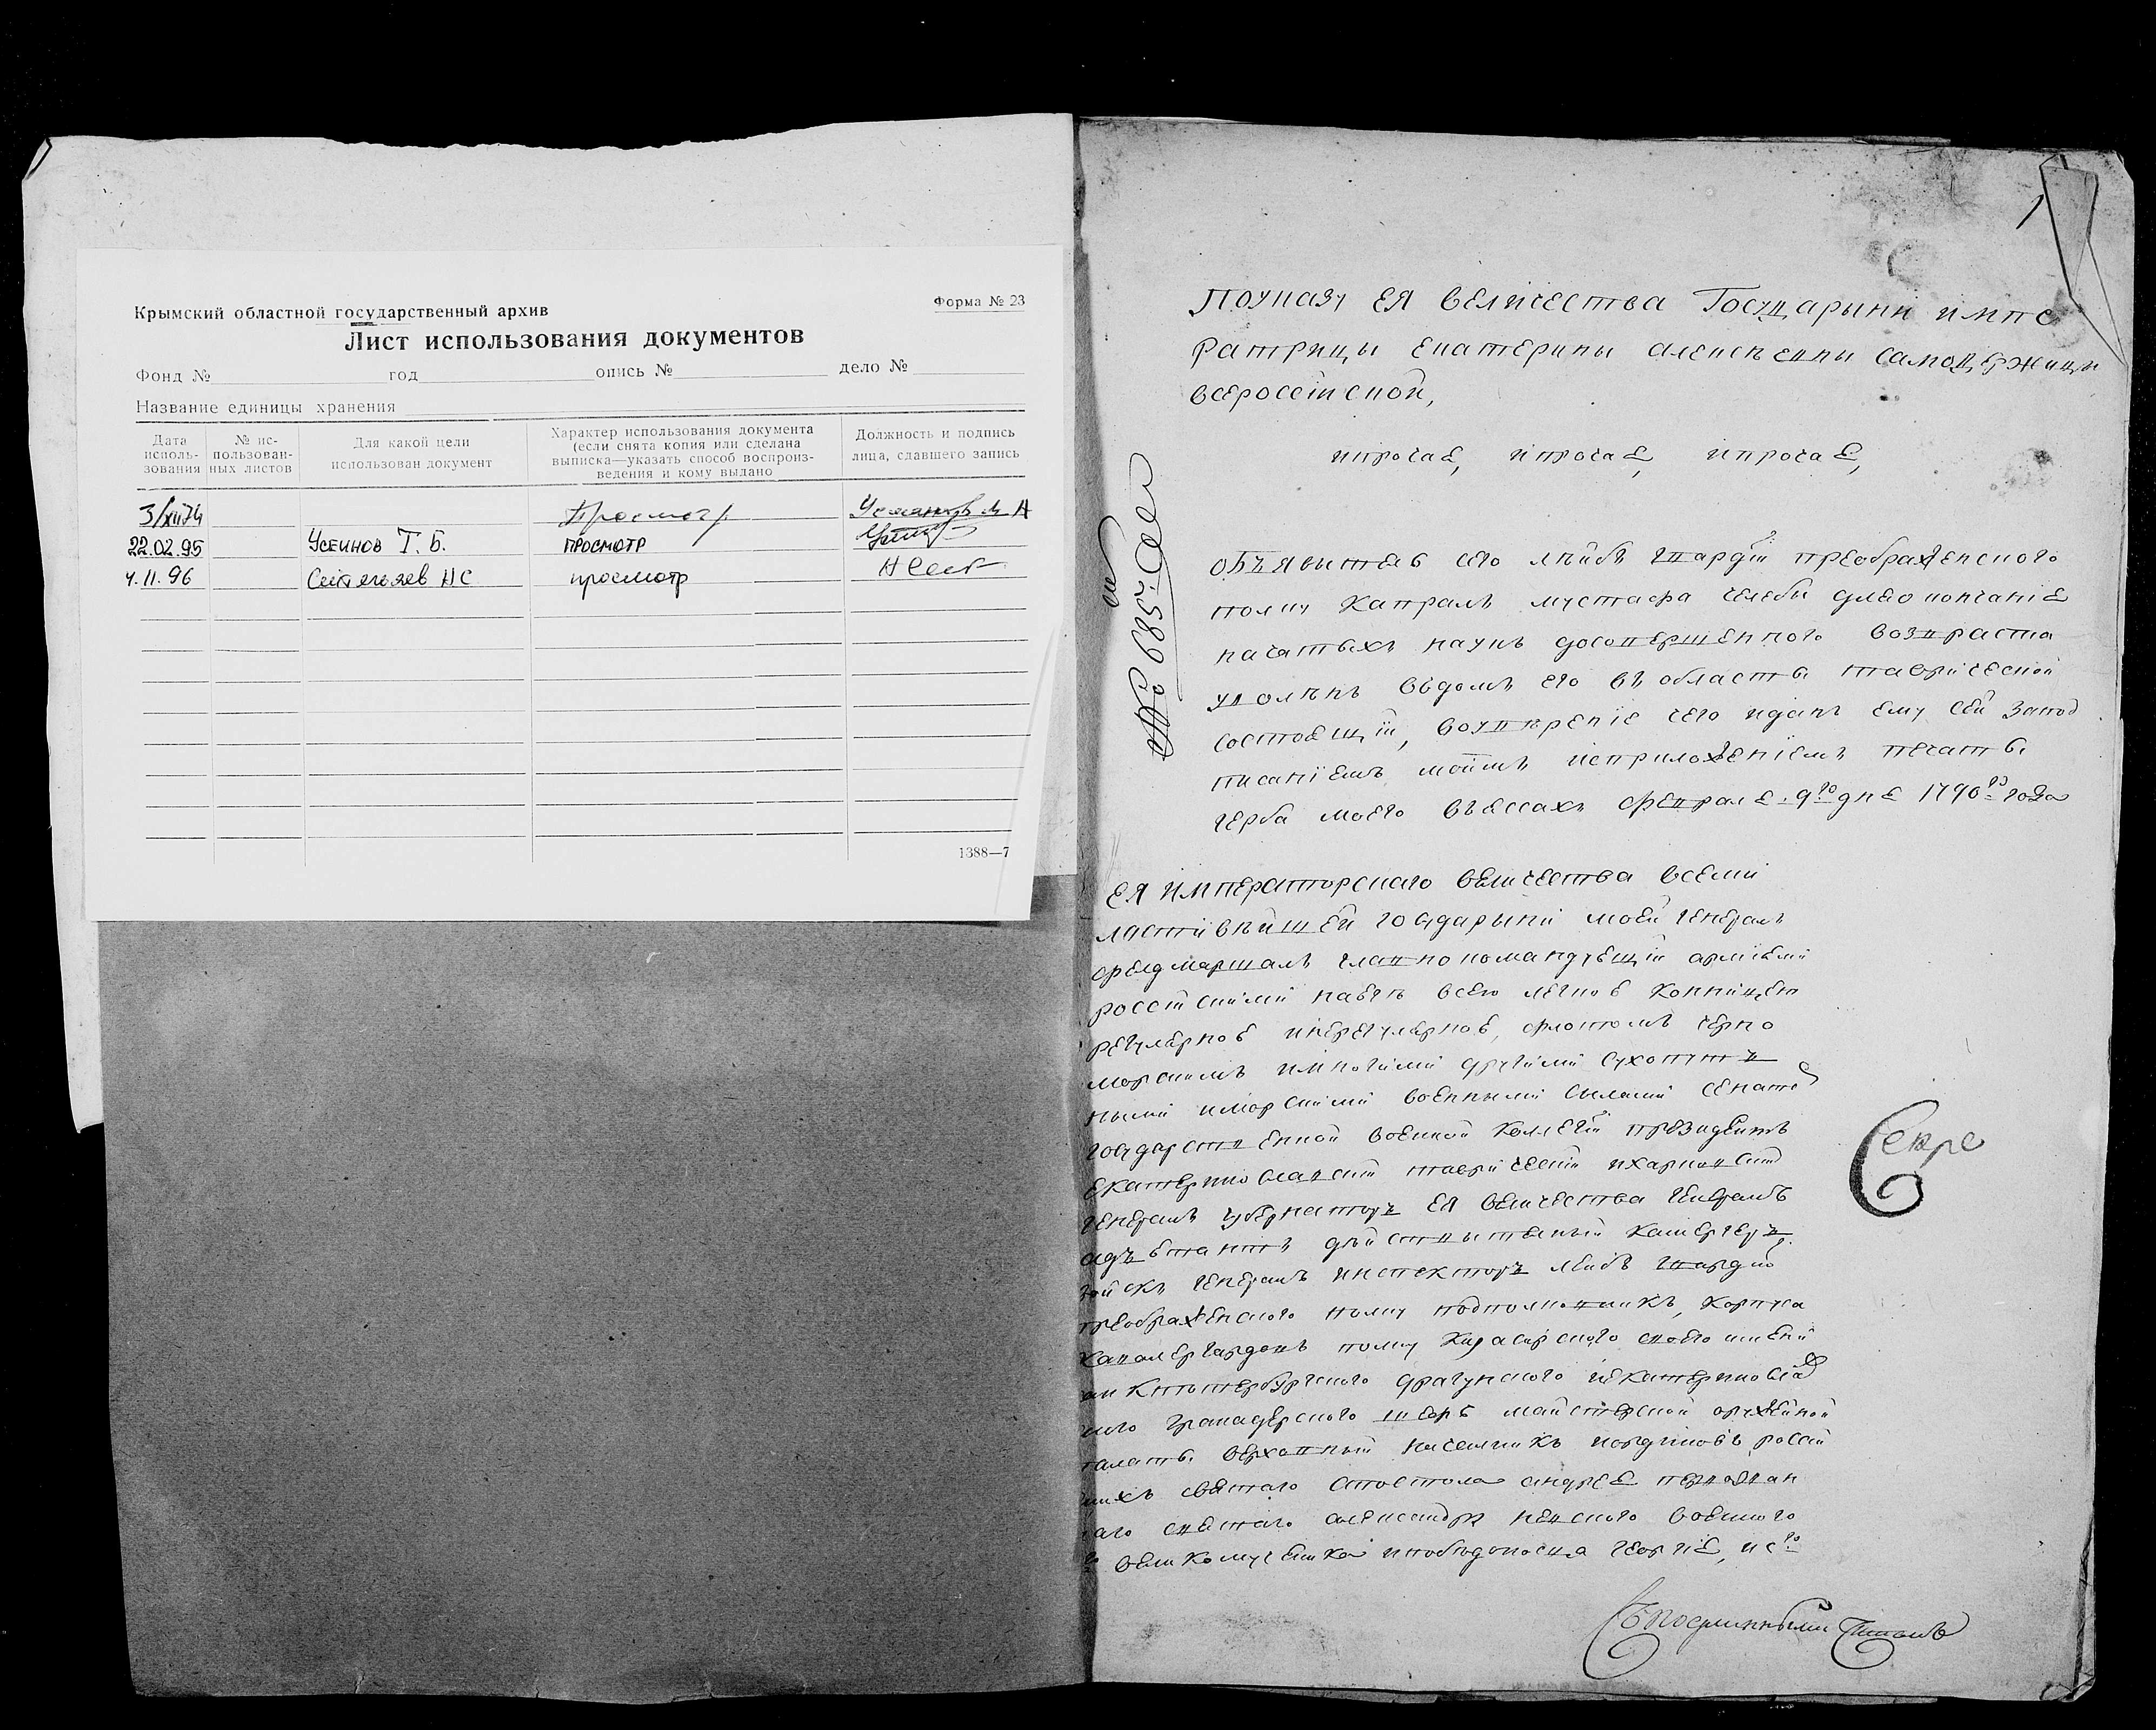 Крымский областной государственный архив
Форма № 23
Лист использования документов
Фонд № год опись № дело №
Название единицы хранения
Дата исполь-зования
№ ис-пользован-ных листов
Для какой цели использован документ
Характер использования документа (если снята копия или сделана выписка—указать способ воспроиз-ведения и кому выдано
Должность и подпись лица, сдавшего запись
3/XII 74 Просмотр
22.02.95 Усеинов Т. Б. просмотр
4.11.96 просмотр
1388—7
1
По указу ея величества Государыни импе
ратрицы екатерины алексѣевны самодержицы
всеросейской,
ипрочая, ипрочая, ипрочая,
№ 685
объявитель сего лейбъ гвардїи преображенского
полку капралъ мустафа челеби для окончанїя
начатыхъ наукъ до совершенного возраста
уволенъ въ домъ его въ области таврической
состоящїй, во увѣренїе чего и данъ ему сей за под
писанїемъ моимъ и с приложенїемъ печати
герба моего въ яссахъ февраля 9го дня 1790го года
ея императорскаго величества всеми
лостивѣйшей государыни моей генералъ
фелдмаршалъ главнокомандующїй армїями
россїйскими надъ всею легкою конницею
регулярною и нерегулярною, флотомъ черно
морскимъ и многими другими сухопутн
ными и морскими военными силами сенато
государственной военной коллегїи президентъ
екатеринославский таврической и харковский
генералъ губернаторъ ея величества генералъ
адъютантъ дѣйствительный камергеръ
войскъ генералъ инспекторъ лейбъ гвардїи
преображенского полку подполковникъ, корпуса
кавалергардовъ полку кирасирского своего имени
санктпетербургского драгунского и екатеринослав
ского гранадерского шефъ мастерской оружейной
палаты верховный началникъ и орденовъ россїй
скихъ святаго апостола андрея первозван
наго святаго александра невского военного
великомученика и победоносца георгїя, и с го
Секре
Съ подлиннымъ читалъ